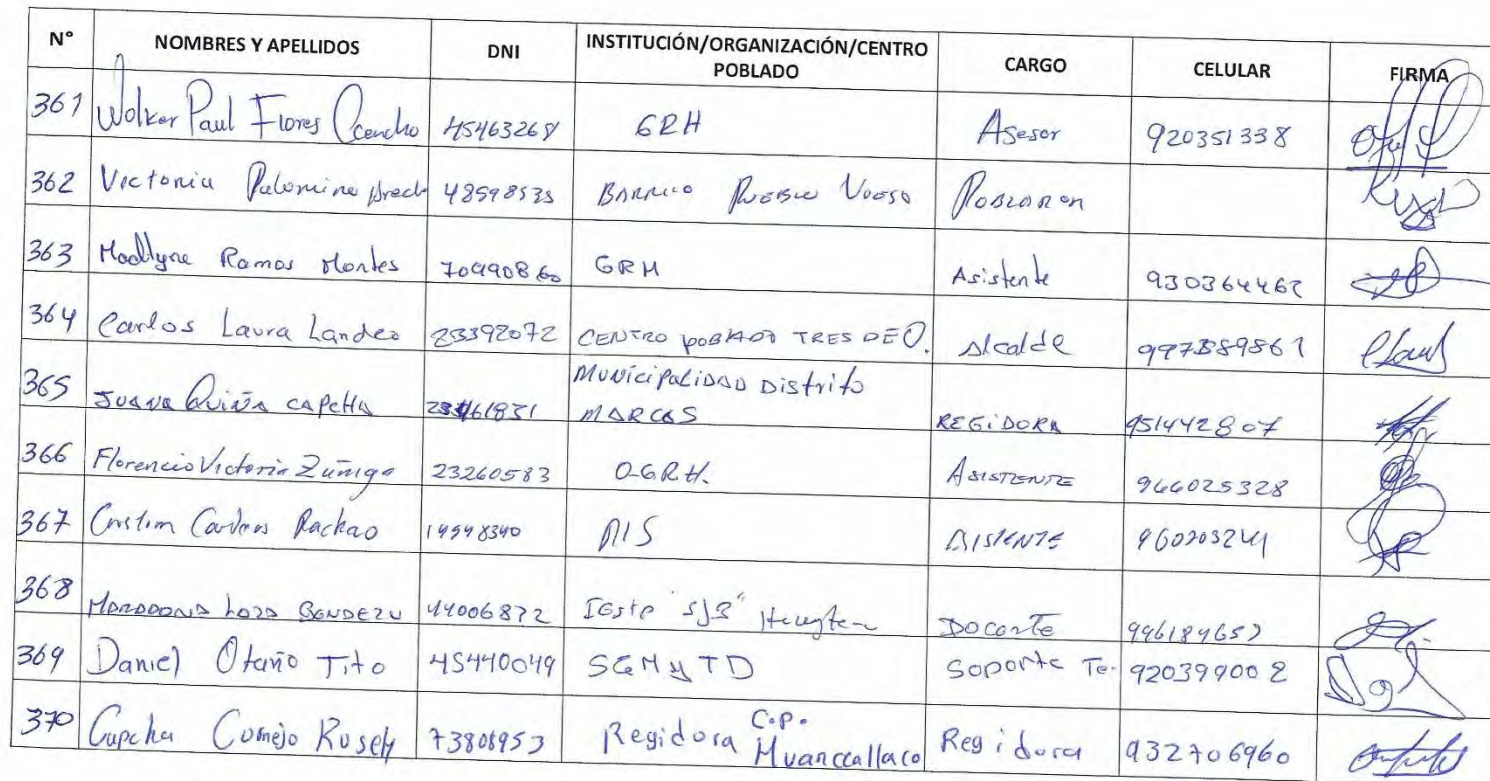 N° NOMBRES Y APELLIDOS DNI INSTITUCIÓN/ORGANIZACIÓN/CENTRO POBLADO CARGO CELULAR FIRMA
361 Wolker Paul Flores Ccencho 45463268 GRH Asesor 920351338
362 Victoria Palomino 48598535 BARRIO PUEBLO Poblador
363 Ramos Montes GRH Asistente 930364462
364 Carlos Laura Landeo 23392072 CENTRO POBLADO TRES DE O. Alcalde
365 JUANA QUIÑA CAPCHA 23461831 MUNICIPALIDAD Distrito MARCAS REGIDORA 951442807
366 Florencio Victoria Zuñiga 23260583 O-GRH. ASISTENTE 966025328
367 14948340 ASISTENTE
368 44006872 "SJB"
369 Daniel Otaño Tito 45440049 SGMyTD Soporte Te. 920399002
370 Capcha Cornejo Rosely 73808953 Regidora C.P. Huanccallaco Regidora 932706960